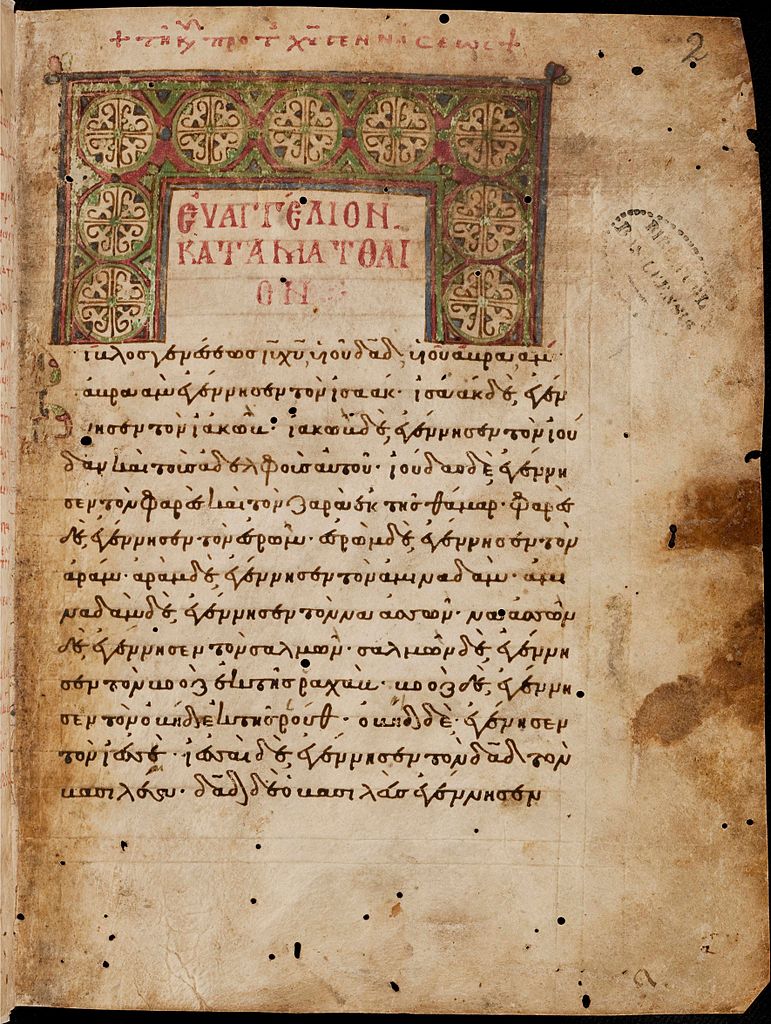 + τῇ κυ προ τ χυ γεννήσεως +
2
ΕΥΑΓΓΕΛΙΟΝ
ΚΑΤΑ ΜΑΤΘΑΙ
ΟΝ
ίβλος γενέσεως ιυ χυ υἱοῦ δαδ υἱοῦ ἀβραάμ·
ἀβραὰμ ἐγέννησεν τὸν ἰσαάκ· ἰσαὰκ δὲ ἐγέν
νησεν τὸν ἰακώβ· ἰακὼβ δὲ ἐγέννησεν τὸν ἰού
δαν καὶ τοὺς ἀδελφοὺς αὐτοῦ· ἰούδας δὲ ἐγέννη
σεν τὸν φαρὲς καὶ τὸν ζαρὰ ἐκ τῆς θάμαρ· φαρὲς
δὲ ἐγέννησεν τὸν ἐσρώμ· ἐσρὼμ δὲ ἐγέννησεν τὸν
ἀράμ· ἀρὰμ δὲ ἐγέννησεν τὸν ἀμιναδάμ· ἀμι
ναδὰμ δὲ ἐγέννησεν τὸν ναασσών· ναασσὼν
δὲ ἐγέννησεν τὸν σαλμών· σαλμὼν δὲ ἐγέννη
σεν τὸν βοὸζ ἐκ τῆς ραχάβ· βοὸζ δὲ ἐγέννη
σεν τὸν ὀβὴδ ἐκ τῆς ρούθ· ὀβὴδ δὲ ἐγέννησεν
τὸν ἰεσσέ· ἰεσσαὶ δὲ ἐγέννησεν τὸν δαδ τὸν
βασιλέα· δαδ δὲ ὁ βασιλεὺς ἐγέννησεν